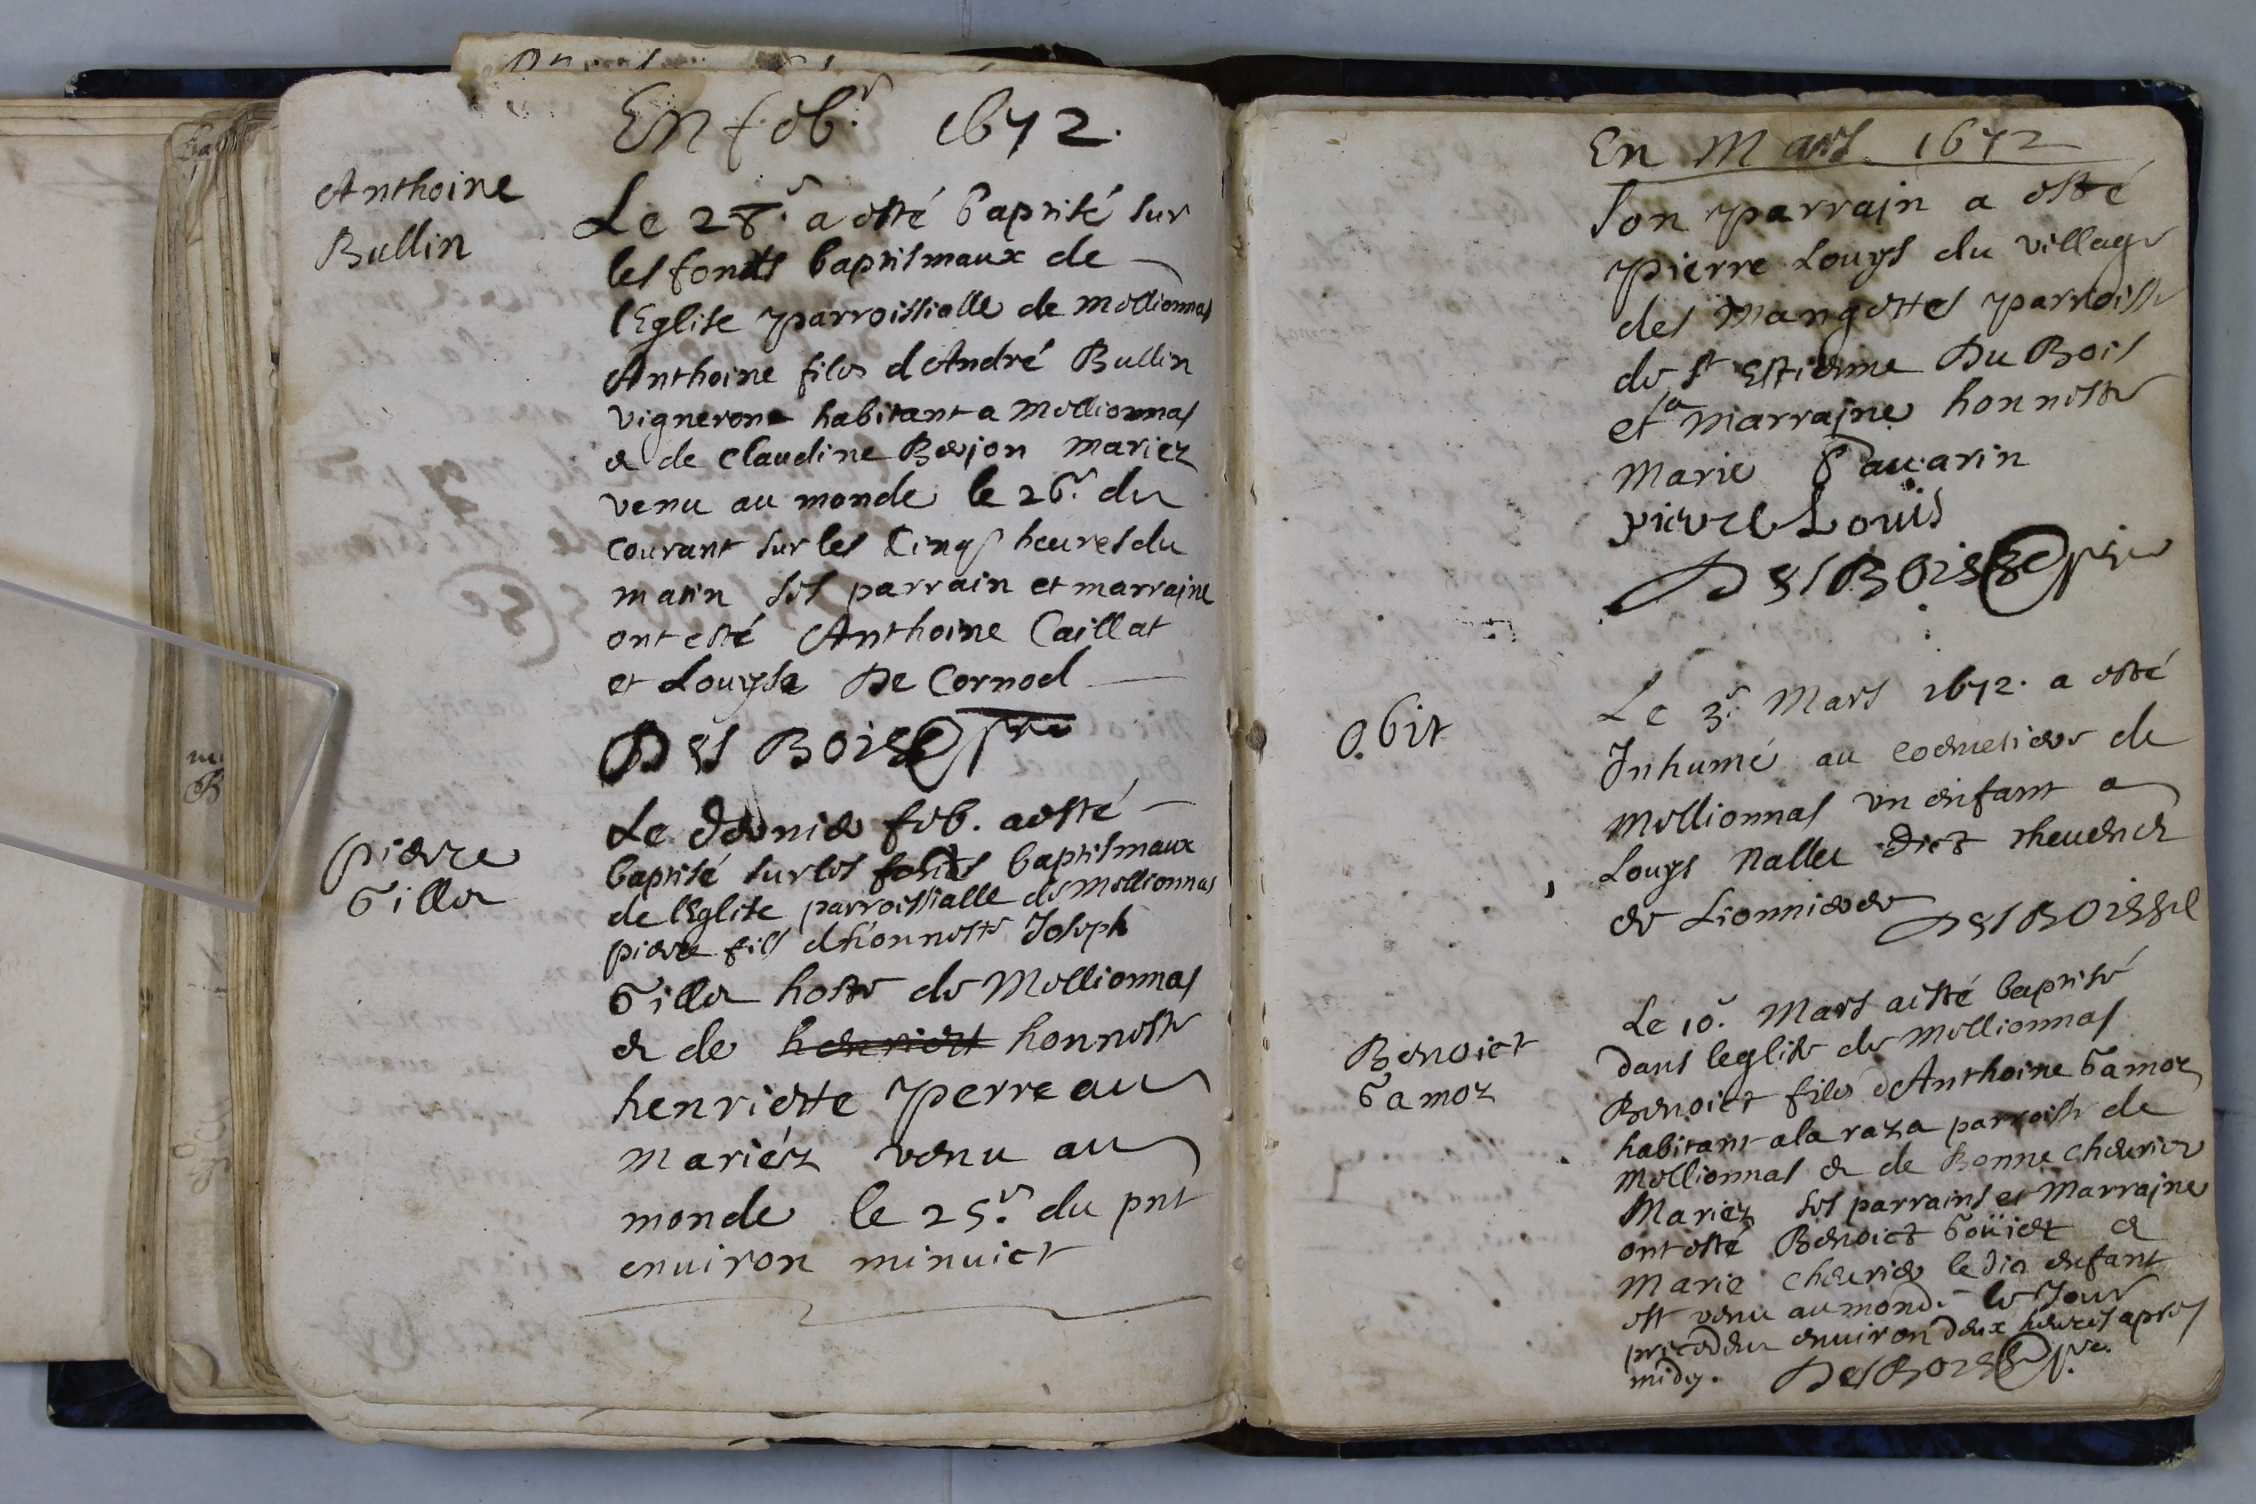 En feb.r 1672.
Anthoine
Bullin
Le 28.e a esté baptisé sur
les fonds baptismaux de
l'Eglise parroissialle de Mellionnas
Anthoine filz d'André Bullin
Vigneron habitant a Mellionnas
& de Claudine Bejon mariez
venu au monde le 26.e du
courant sur les Cinq heures du
matin ses parrain et marraine
ont esté Anthoine Caillat
et Louyse De Cornod
DesBois pre
pierre
Gillet
Le dernier feb. a esté
baptisé sur les fonds baptismaux
de l'Eglise parroissialle de Mellionnas
pierre fils d'honneste Joseph
Gillet hoste de Mellionnas
& de henriett honneste
henriette perreau
mariéz venu au
monde le 25.e du pnt
enuiron minuict
En Mars 1672
Son parrain a esté
pierre Louys du village
des Mangettes parroisse
de St Estienne Du Bois
et sa marraine honneste
Marie
pierre Louis
DesBois pre
Obit
Le 3.e Mars 1672. a esté
Inhumé au coemetiere de
Mellionnas vn enfant a
Louys Nallet dict
de Lionnieres DesBois
Benoict
Gamoz
Le 10.e Mars a esté baptisé
dans l'eglise de Mellionnas
Benoict filz d'Anthoine Gamoz
habitant a la raza parroisse de
Mellionnas & de Bonne Cheurier
Mariez ses parrains et Marraine
ont esté Benoict Goüiet &
Marie Cheurier ledit enfant
est venu au monde le Jour
precedent enuiron deux heures apres
midy. DesBois pre.